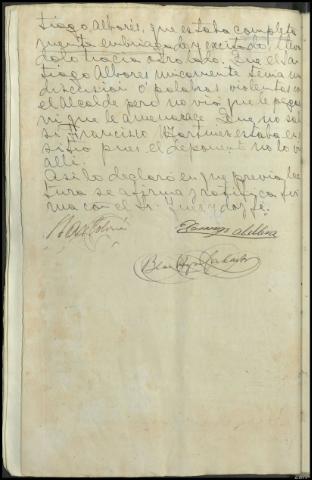 tiago Alborés, que estaba completa
mente embriagado y excitado, lleván
dolo hacia otro lado. Que el San
tiago Albores unicamente tenia una
discusion ó palabras violentas con
el Alcalde pero no vió que le pega
ni que le amenazace. Que no sabe
si Francisco Martinez estaba en el
sitio pues el deponente no lo vió
alli.
Asi lo declaró en que previa lec
tura se afirma y ratifica fir
ma con el Sr. Juez y doy fé.